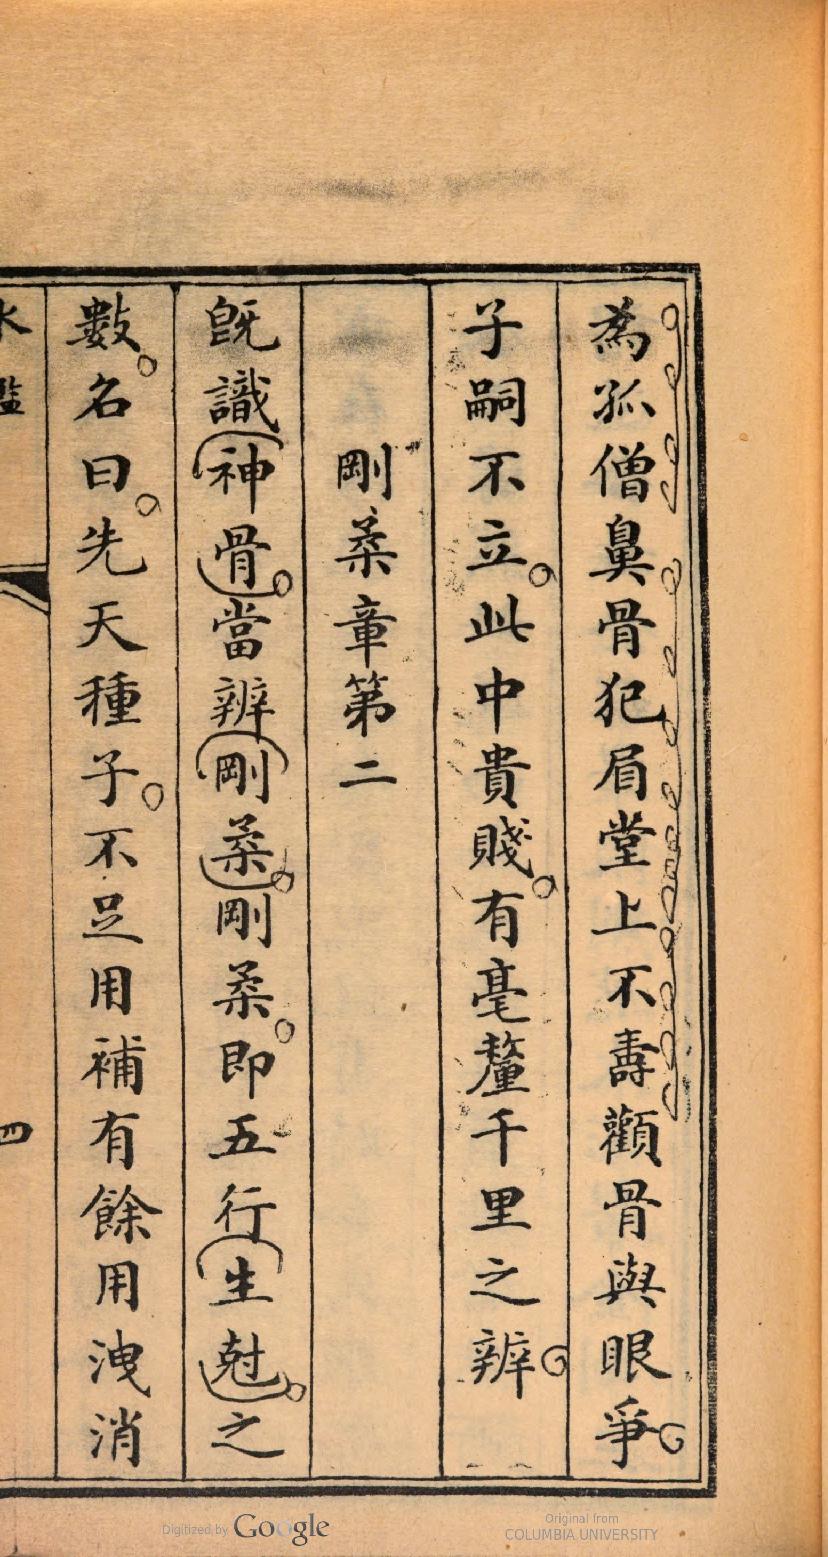 為孤僧鼻骨犯眉堂上不壽顴骨與眼爭
子嗣不立此中貴賤有毫釐千里之辨
剛柔章第二
旣識神骨當辨剛柔剛柔即五行生尅之
數名曰先天種子不足用補有餘用洩消
四
Digitized by Google
Original from
COLUMBIA UNIVERSITY